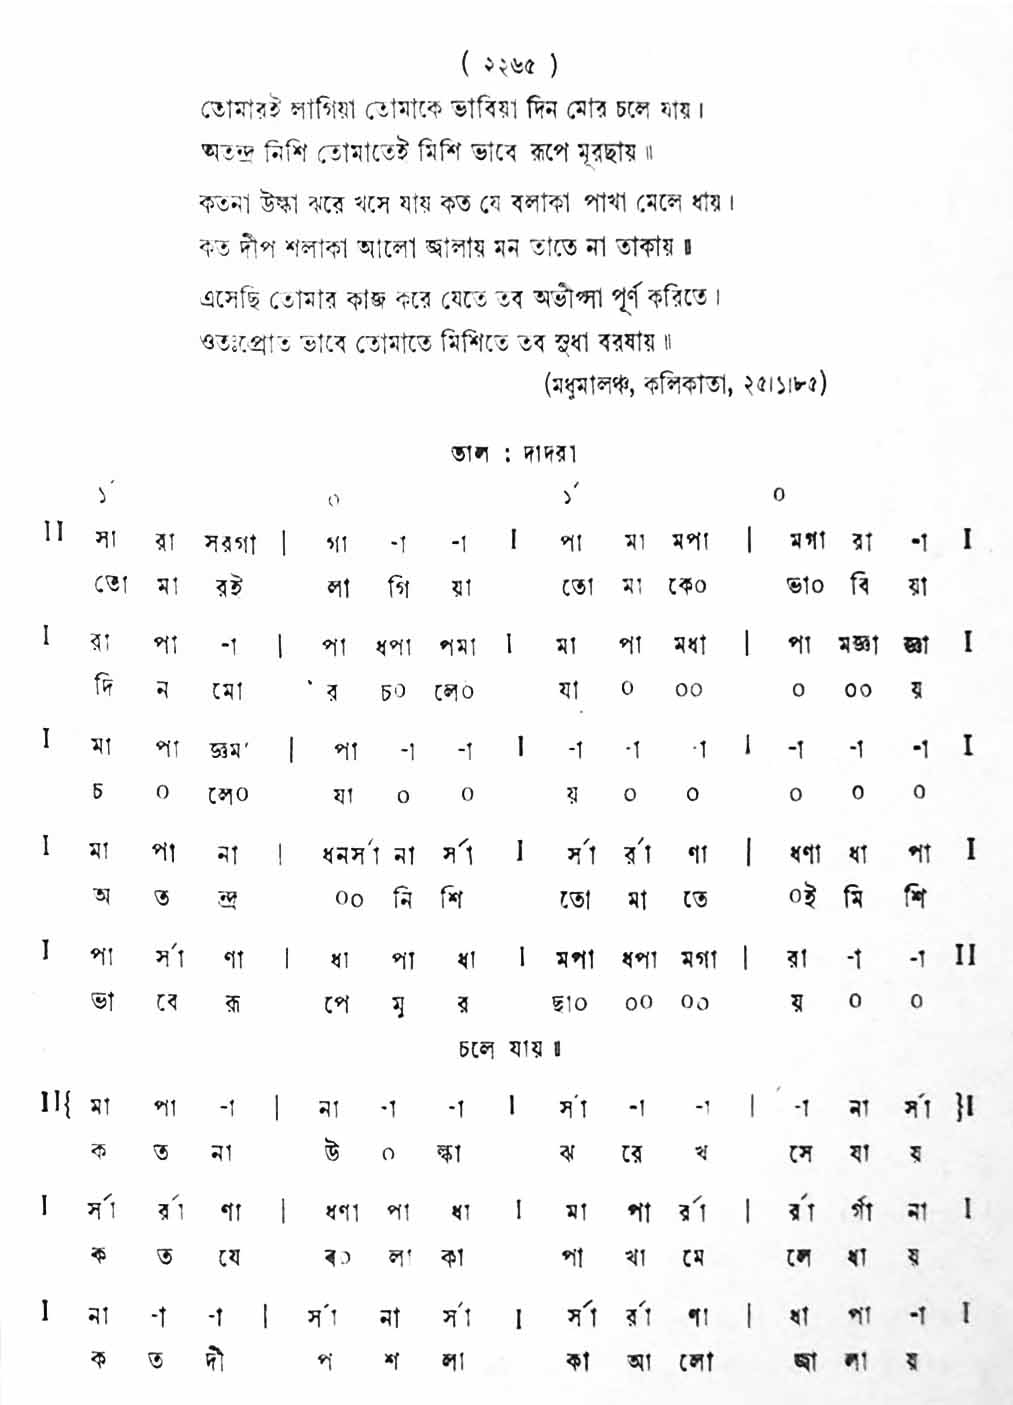 ( ২২৬৫ )
তোমারই লাগিয়া তোমাকে ভাবিয়া দিন মোর চলে যায় ।
অতন্দ্র নিশি তোমাতেই মিশি ভাবে রূপে মূরছায় ॥
কতনা উল্কা ঝরে খসে যায় কত যে বলাকা পাখা মেলে ধায় ।
কত দীপ শলাকা আলো জ্বালায় মন তাতে না তাকায় ॥
এসেছি তোমার কাজ করে যেতে তব অভীপ্সা পূর্ণ করিতে ।
ওতঃপ্রোত ভাবে তোমাতে মিশিতে তব সুধা বরষায় ॥
(মধুমালঞ্চ, কলিকাতা, ২৫।১।৮৫)
তাল : দাদরা
১´ ০ ১´ ০
II সা রা সরগা | গা -া -া I পা মা মপা | মগা রা -া I
তো মা রই লা গি য়া তো মা কে০ ভা০ বি য়া
I রা পা -া | পা ধপা পমা I মা পা মধা | পা মজ্ঞা জ্ঞা I
দি ন মো র চ০ লে০ যা ০ ০০ ০ ০০ য়
I মা পা জ্ঞম´ | পা -া -া I -া -া -া I -া -া -া I
চ ০ লে০ যা ০ ০ য় ০ ০ ০ ০ ০
I মা পা না | ধনর্সা না র্সা I র্সা র্রা ণা | ধণা ধা পা I
অ ত ন্দ্র ০০ নি শি তো মা তে ০ই মি শি
I পা র্সা ণা | ধা পা ধা I মপা ধপা মগা | রা -া -া II
ভা বে রূ পে মূ র ছা০ ০০ ০০ য় ০ ০
চলে যায় ॥
II{ মা পা -া | না -া -া I র্সা -া -া | -া না র্সা }I
ক ত না উ ০ ল্কা ঝ রে খ সে যা য়
I র্সা র্রা ণা | ধণা পা ধা I মা পা র্রা | র্রা র্গা না I
ক ত যে ব০ লা কা পা খা মে লে ধা য়
I না -া -া | র্সা না র্সা I র্সা র্রা ণা | ধা পা -া I
ক ত দী প শ লা কা আ লো জ্বা লা য়